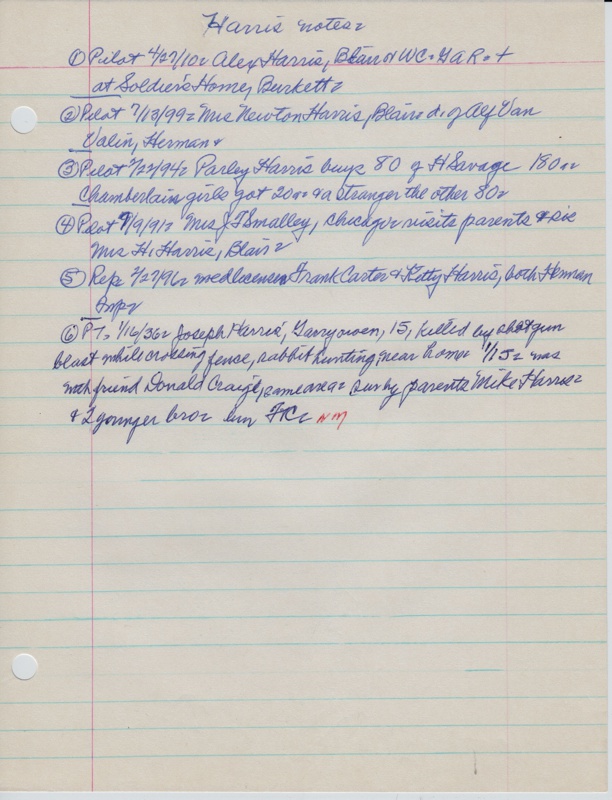 Harris notes-
① Pilot 4/27/10- Alex Harris, Blair WC- GAR- +
at Soldier's Home, Burkett-
② Pilot 7/13/99- Mrs Newton Harris, Blair d. of Alf Van
Valin, Herman-
③ Pilot 2/22/94- Parley Harris buys 80 of H Savage 180-
Chamberlain girls got 20- & a stranger the other 80-
④ Pilot 9/9/91- Mrs J T Smalley, Chicago- visits parents & sis
Mrs H. Harris, Blair-
⑤ Rep- 2/27/96- wed license- Frank Carter & Ketty Harris, both Herman
⑥ PT- 1/16/36- Joseph Harris, Garryowen, 15, killed by shotgun
blast while crossing fence, rabbit hunting, near home 1/15- was
with friend Donald Craig, same area- sur by parents Mike Harris-
& 2 younger bro-